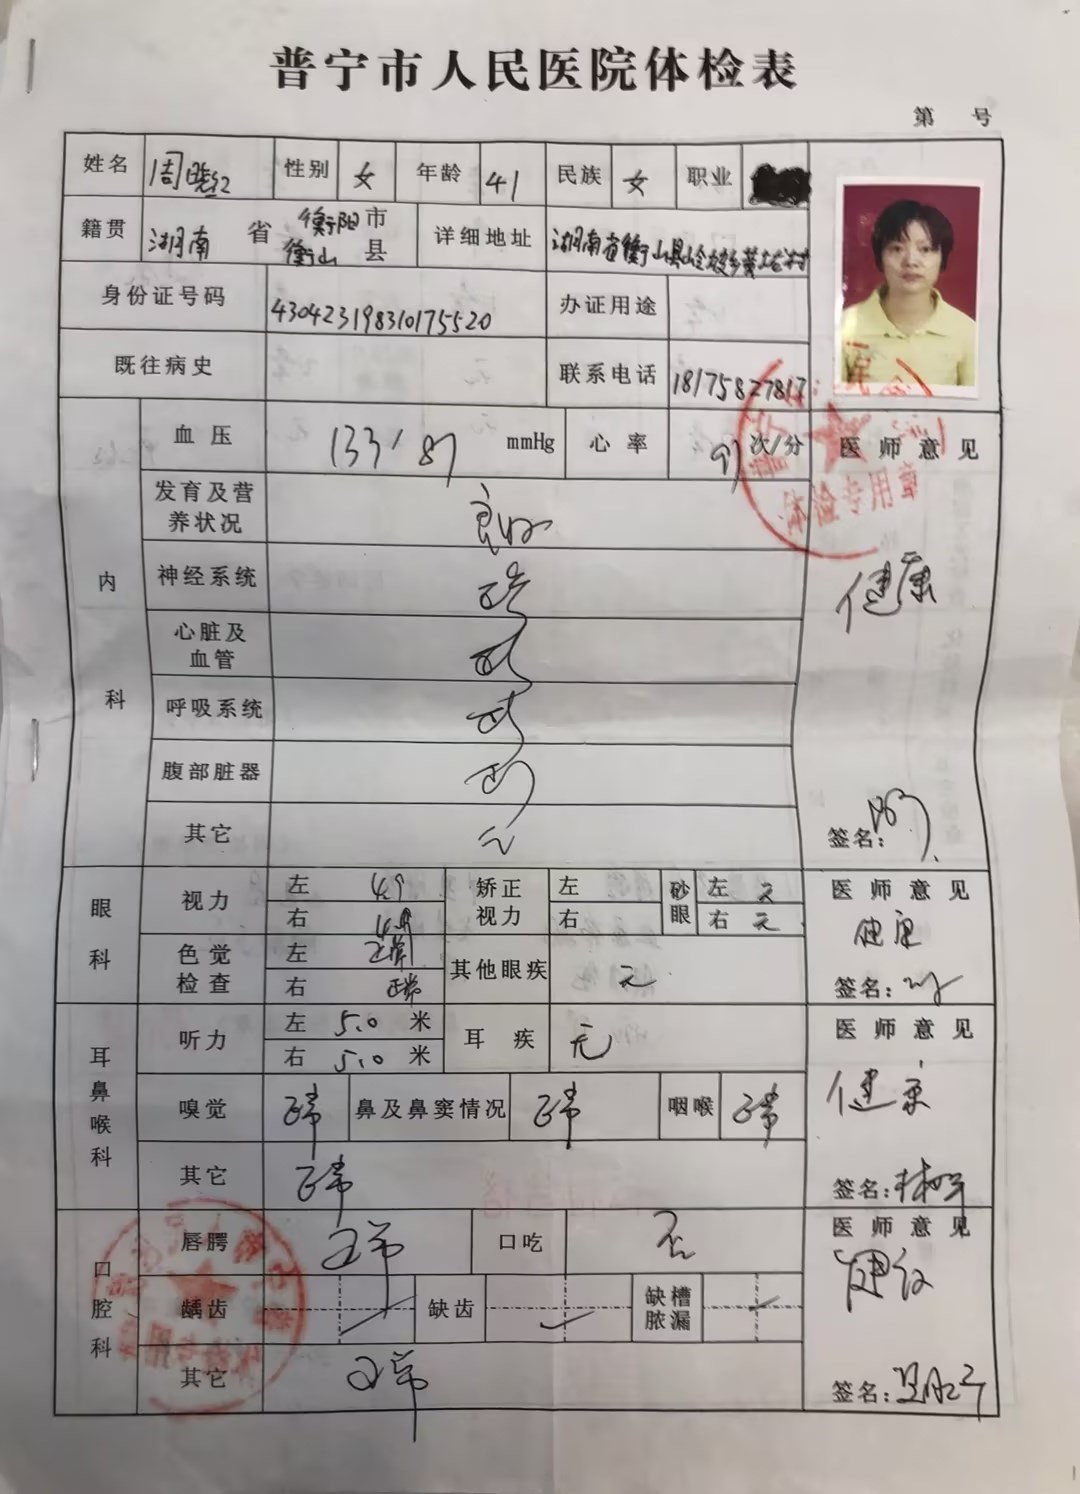 普宁市人民医院体检表
第 号
姓名 周晓红 性别 女 年龄 41 民族 女 职业
籍贯 湖南 省 衡阳 市 衡山 县 详细地址 湖南省衡山县岭坡乡黄塘村
身份证号码 430423198310175520 办证用途
既往病史 联系电话 18175827817
内科
血压 133/87 mmHg 心率 91 次/分 医师意见
发育及营养状况 良好
神经系统 正常
健康
心脏及血管
呼吸系统
腹部脏器
其它 无
签名:
眼科
视力 左 4.9 右 4.9 矫正视力 左 右 砂眼 左 无 右 无 医师意见
健康
色觉检查 左 正常 右 正常 其他眼疾 无
签名:
耳鼻喉科
听力 左 5.0 米 右 5.0 米 耳疾 无 医师意见
嗅觉 正常 鼻及鼻窦情况 正常 咽喉 正常
健康
其它 正常
签名:
口腔科
唇腭 正常 口吃 否 医师意见
龋齿 缺齿 缺槽脓漏
其它 正常
签名:
体检专用章